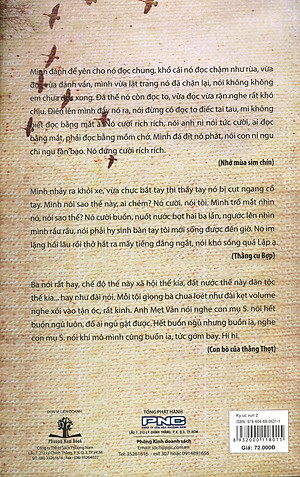 Mình đành để yên cho nó đọc chung, khổ cái nó đọc chậm như rùa, vừa
đọc vừa đánh vần, mình vừa lật trang nó đã chặn lại, nói không không
em chưa đọc xong. Đã thế nó còn đọc to, vừa đọc vừa rặn nghe rất khó
chịu. Điên lên mình đẩy nó ra, nói đừng có đọc to điếc tai tau, mi không
biết đọc bằng mắt à. Nó cười rích rích, nói anh ni nói tức cười, ai đọc
bằng mắt, phải đọc bằng mồm chớ. Mình đá đít nó phát, nói con ni ngu
chi ngu tàn bạo. Nó đứng cười rích rích.
(Nhớ mùa sim chín)
Mình nhảy ra khỏi xe, vừa chực bắt tay thì thấy tay nó bị cụt ngang cổ
tay. Mình nói sao thế này, ai chém? Nó cười, nói tôi. Mình trố mắt nhìn
nó, nói sao thế? Nó cười buồn, nuốt nước bọt hai ba lần, ngước lên nhìn
mình rầu rầu, nói phải hy sinh bàn tay tôi mới sống được đến giờ. Nó im
lặng hồi lâu rồi thở hắt ra mấy tiếng đắng ngắt, nói khó sống quá Lập ạ.
(Thằng cu Bợp)
Bà nói rất hay, chế độ thế này xã hội thế kia, đất nước thế này dân tộc
thế kia... hay như đài nói. Mỗi tội giọng bà chua loét như đài kẹt volume
nghe xói vào tận óc, rất kinh. Anh Mẹt Vân nói nghe con mụ S. nói hết
buồn ngủ luôn, đố ai ngủ gật được. Hết buồn ngủ nhưng buồn ỉa, nghe
con mụ S. nói khi mô mình cũng buồn ỉa, tức gớm bay. Hi hi.
(Con bò của thằng Thọt)
ĐƠN VỊ LIÊN DOANH
Phương Nam Book
TỔNG PHÁT HÀNH
PNC
Phòng Kinh doanh sách
Ký ức vụn 2
8932000118015
Giá: 72.000Đ